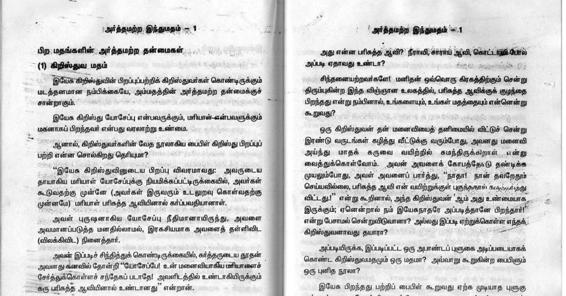 அர்த்தமற்ற இந்துமதம் – 1
பிற மதங்களின் அர்த்தமற்ற தன்மைகள்
(1) கிறிஸ்துவ மதம்
இயேசு கிறிஸ்துவின் பிறப்புபற்றிக் கிறிஸ்துவர்கள் கொண்டிருக்கும்
மடத்தனமான நம்பிக்கையே, அம்மதத்தின் அர்த்தமற்ற தன்மைக்குச்
சான்றாகும்.
இயேசு கிறிஸ்து யோசேப்பு என்பவருக்கும், மரியாள்-என்பவளுக்கும்
மகனாகப் பிறந்தவர் என்பது வரலாற்று உண்மை.
ஆனால், கிறிஸ்துவர்களின் வேத நூலாகிய பைபிள் கிறிஸ்து பிறப்புப்
பற்றி என்ன சொல்கிறது தெரியுமா?
"இயேசு கிறிஸ்துவினுடைய பிறப்பு விவரமாவது: அவருடைய
தாயாகிய மரியாள் யோசேப்புக்கு நியமிக்கப்பட்டிருக்கையில், அவர்கள்
கூடுவதற்கு முன்னே (அவர்கள் இருவரும் உடலுறவு கொள்வதற்கு
முன்னமே) மரியாள் பரிசுத்த ஆவியினால் கர்ப்பவதியானாள்.
அவள் புருஷனாகிய யோசேப்பு நீதிமானாயிருந்து, அவளை
அவமானப்படுத்த மனதில்லாமல், இரகசியமாக அவளைத் தள்ளிவிட
(விலக்கிவிட) நினைத்தார்.
அவன் இப்படிச் சிந்தித்துக் கொண்டிருக்கையில், கர்த்தருடைய தூதன்
அவனது கனவில் தோன்றி "யோசேப்பே! உன் மனைவியாகிய மரியாளைச்
சேர்த்துக்கொள்ளச் சந்தேகப் படாதே! அவளிடத்தில் உண்டாகியிருக்கும்
கரு பரிசுத்த ஆவியினால் உண்டானது" என்றான்.
அர்த்தமற்ற இந்துமதம் – 1
அது என்ன பரிசுத்த ஆவி? நீராவி, சாராய ஆவி, கொட்டாவி போல
அப்படி ஏதாவது உண்டா?
சிந்தனையற்றவர்களே! மனிதன் ஒவ்வொரு கிரகத்திற்கும் சென்று
திரும்புகின்ற இந்த விஞ்ஞான உலகத்தில், பரிசுத்த ஆவிக்குக் குழந்தை
பிறந்தது என்று நம்பினால், உங்களையும், உங்கள் மதத்தையும் என்னென்று
கூறுவது?
ஒரு கிறிஸ்துவன் தன் மனைவியைத் தனிமையில் விட்டுச் சென்று
இரண்டு வருடங்கள் கழித்து வீட்டுக்கு வரும்போது, அவனது மனைவி
அய்ந்து மாதக் கருவை வயிற்றில் சுமந்திருக்கிறாள் என்று
வைத்துக்கொள்வோம். அவன் அவளைக் கோபத்தோடு தண்டிக்க
முயலும்போது, அவள் அவனைப் பார்த்து, "நாதா! நான் தவறேதும்
செய்யவில்லை, பரிசுத்த ஆவி என் வயிற்றுக்குள் புகுந்ததால்
விட்டது!" என்று கூறினால், அந்த கிறிஸ்துவன் ஆம் அது உண்மையாக
இருக்கும்; ஏனென்றால் நம் இயேசுநாதரே அப்படித்தானே பிறந்தார்!
என்று பேசாமல் சென்றுவிடுவானா? அல்லது இப்படி ஏற்றுக்கொள்ள எந்தக்
கிறிஸ்துவனாவது தயாரா?
அப்படியிருக்க, இப்படிப்பட்ட ஒரு அபாண்டப் புளுகை அடிப்படையாகக்
கொண்ட கிறிஸ்துவமதமும் ஒரு மதமா? அவ்வாறு கூறுகின்ற பைபிளும்
ஒரு புனித நூலா?
இயேசு பிறந்தது பற்றிப் பைபிள் கூறுவது ஏற்க முடியாத புளுகு